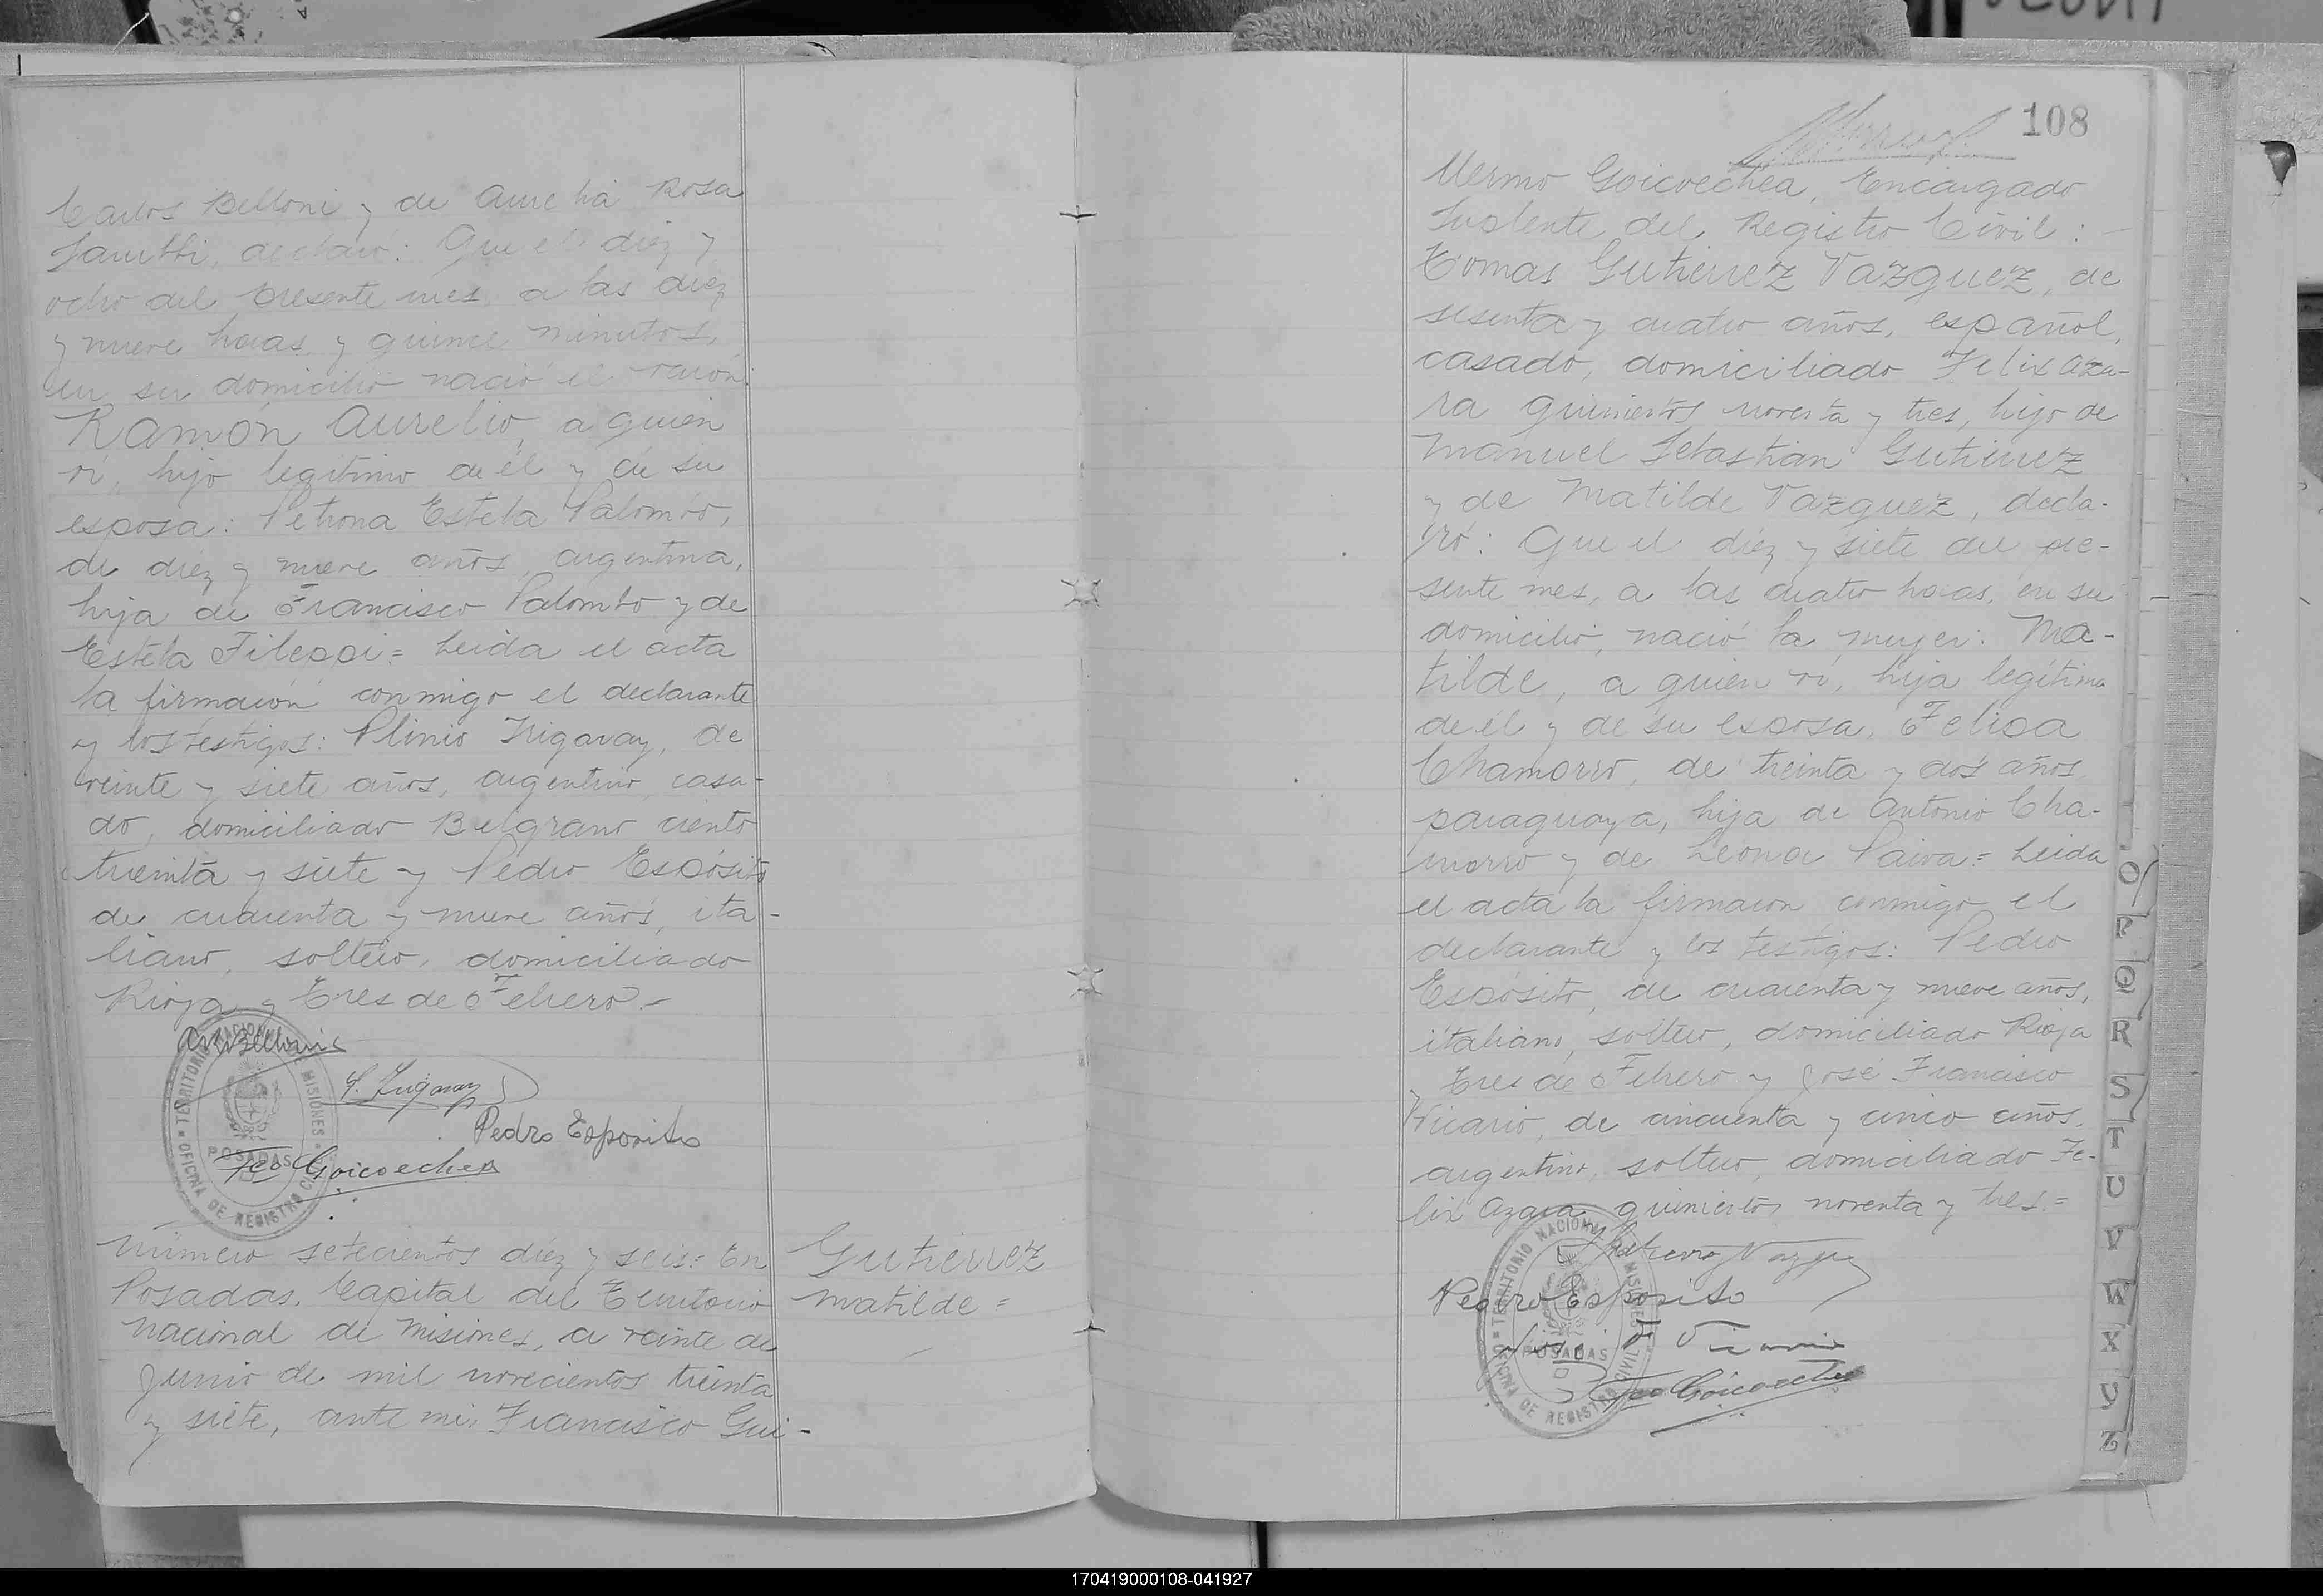 Carlos Belloni y de Aurelia Rosa
declaró: Que el diez y
ocho del presente mes a las diez
y nueve horas y quince minutos,
en su domicilio nació el varón:
Ramón Aurelio, a quien
vi, hijo legítimo de él y de su
esposa: Petrona Estela Palombo,
de diez y nueve años, argentina,
hija de Francisco Palombo y de
Estela Fileppi = Leida el acta
la firmaron conmigo el declarante
y los testigos: Plinio Irigaray, de
veinte y siete años, argentino, casa-
do, domiciliado Belgrano ciento
treinta y siete y Pedro Espósito
de cuarenta y nueve años, ita-
liano, soltero, domiciliado
Rioja y Tres de Febrero.-
TERRITORIO NACIONAL DE MISIONES
OFICINA DE REGISTRO CIVIL
POSADAS
Pedro Esposito
Fco Goicoechea
Número setecientos diez y seis: En
Posadas, Capital del Territorio
Nacional de Misiones, a veinte de
Junio de mil novecientos treinta
y siete, ante mi, Francisco Gui-
Gutierrez
Matilde =
108
llermo Goicoechea, Encargado
Suplente del Registro Civil: -
Tomas Gutierrez Vazquez, de
sesenta y cuatro años, español,
casado, domiciliado Felix Aza-
ra quinientos noventa y tres, hijo de
Manuel Sebastian Gutierrez
y de Matilde Vazquez, decla-
ró: Que el diez y siete del pre-
sente mes, a las cuatro horas, en su
domicilio, nació la mujer: Ma-
tilde, a quien vi, hija legítima
de él y de su esposa, Felipa
Chamorro, de treinta y dos años,
paraguaya, hija de Antonio Cha-
morro y de Leona Paiva = Leida
el acta la firmaron conmigo el
declarante y los testigos: Pedro
Espósito, de cuarenta y nueve años,
italiano, soltero, domiciliado Rioja
y Tres de Febrero y José Francisco
Vicario, de cincuenta y cinco años,
argentino, soltero, domiciliado Fe-
lix Azara quinientos noventa y tres.=
TERRITORIO NACIONAL DE MISIONES
OFICINA DE REGISTRO CIVIL
POSADAS
Pedro Esposito
Fco Goicoechea
O
P
Q
R
S
T
U
V
W
X
Y
Z
170419000108-041927